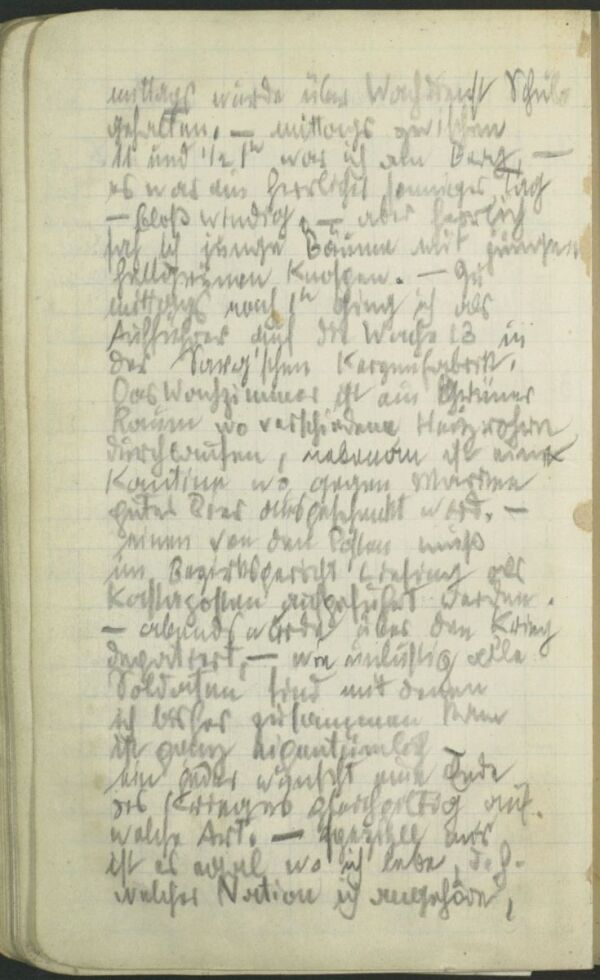 mittags wurde über Wachdienst Schule
gehalten, — mittags zwischen
11 und 1/2 1h war ich am Berg, —
es war ein herrlicher sonniger Tag
— bloß windig, — aber herrlich
sah ich junge Bäume mit jungen
hellgrünen Knospen. — Zu
mittags nach 1h ging ich als
Aufführer auf die Wache 13 in
der Sarg'schen Kerzenfabrik.
Das Wachzimmer ist ein
Raum wo verschiedene Heizrohre
durchlaufen, nebenan ist eine
Kantine wo gegen Marken
gutes Bier ausgeschenkt wird. —
einen von den Posten muß
im Bezirksgericht Liesing als
Kassaposten aufgeführt werden.
— abends wurde über den Krieg
debatiert, — wie unlustig alle
Soldaten sind mit denen
ich bisher zusammen kam
ist ganz eigentümlich
ein jeder wünscht ein Ende
des Krieges gleichgiltig auf
welche Art. — speziell mir
ist es egal wo ich lebe, d.h.
welcher Nation ich angehöre,